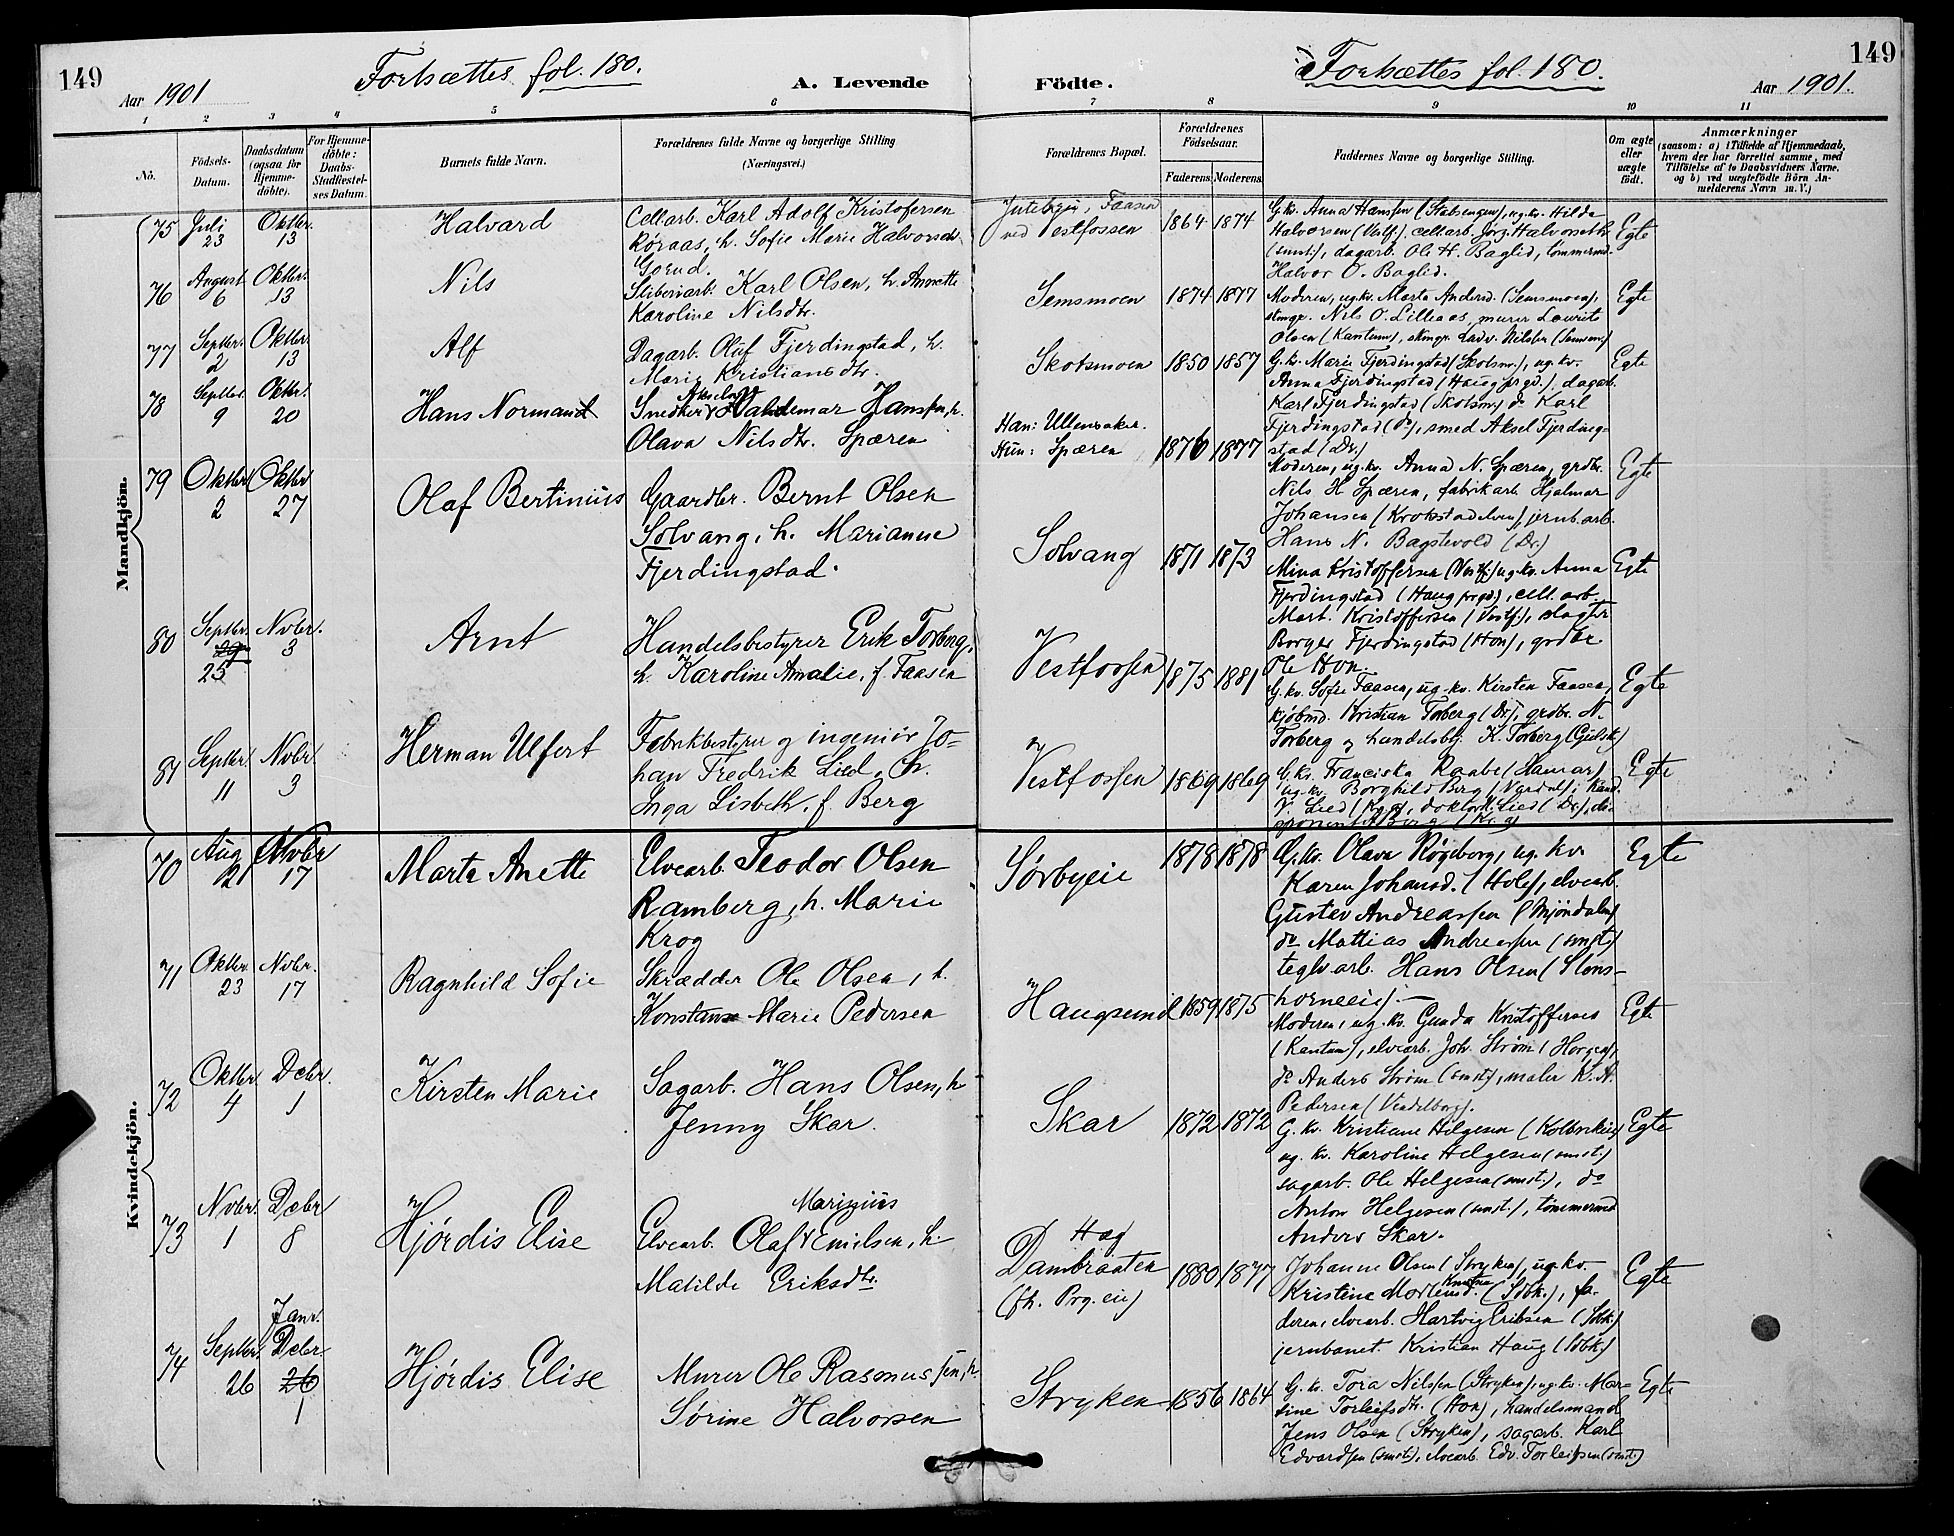 149
Aar 1901
Fortsættes fol. 180.
A. Levende
Födte.
Fortsættes fol. 180.
Aar 1901.
149
1 2 3 4 5 6 7 8 9 10 11
No.
Födsels-
Datum.
Daabsdatum
(ogsaa for
Hjemme-
döbte).
For Hjemme-
döbte:
Daabs-
Stadfæstel-
ses Datum.
Barnets fulde Navn.
Forældrenes fulde Navne og borgerlige Stilling
(Næringsvei.)
Forældrenes Bopæl.
Forældrenes
Födselsaar.
Faderens. Moderens.
Faddernes Navne og borgerlige Stilling.
Om ægte
eller
uægte
födt.
Anmærkninger
(saasom: a) i Tilfælde af Hjemmedaab,
hvem der har forrettet samme, med
Tilföielse af to Daabsvidners Navne,
og b) ved uægtefödte Börn An-
melderens Navn m. V.)
Mandkjön.
75 Juli 23 Oktbr. 13
Halvard
Cellarb. Karl Adolf Kristofersen
Røraas, h. Sofie Marie Halvorsdtr.
Gorud.
Faasen
ved Vestfossen
1864 1874
G. kv. Anna Hanssen, ug. kv. Hilda
Halvorsen (Vestf.), cellarb.
(smst.), dagarb. Ole H. Baglid, tømmermd.
Halvor O. Baglid.
Egte
76 August 6 Oktbr. 13
Nils
Sliberiarb. Karl Olsen, h. Annette
Karoline Nilsdtr.
Semsmoen
1874 1877
Moderen, ug. kv. Marta Andersd. (Semsmoen),
Nils O. Lilleaas, murer Laurits
Olsen (Kantum)
Egte
77 Septbr. 2 Oktbr. 13
Alf
Dagarb. Oluf Fjerdingstad, h.
Marie Kristiansdtr.
Skotsmoen
1850 1857
G. kv. Marie Fjerdingstad (Skotsm.), ug. kv.
Anna Fjerdingstad (Haug prgd.), dagarb.
Karl Fjerdingstad (Skotsm.) do Karl
Fjerdingstad (do), smed Aksel Fjerding-
stad (Dr.)
Egte
78 Septbr. 9 Oktbr. 20
Hans Normann
Snedker Valdemar Hanssen, h.
Olava Nilsdtr. Spæren
Han: Ullensaker.
Hun: Spæren
1876 1877
Moderen, ug. kv. Anna N. Spæren, grdbr.
Nils H. Spæren, fabrikarb. Hjalmar
Johansen (Krokstadelven), jernb.arb.
Hans N. Bagstevold (Dr.)
Egte
79 Oktbr. 2 Oktbr. 27
Olaf Bertinius
Gaardbr. Bernt Olsen
Solvang, h. Marianne
Fjerdingstad.
Solvang
1871 1873
Mina Kristoffersen (Vestf.) ug. kv. Anna
Fjerdingstad (Haug prgd.), cell. arb.
Mart. Kristoffersen (Vestf.), slagter
Borger Fjerdingstad (Hon), grdbr.
Ole Hon.
Egte
80 Septbr. 29 25 Novbr. 3
Arnt
Handelsbestyrer Erik Torberg,
h. Karoline Amalie, f. Faasen
Vestfossen
1875 1881
G. kv. Sofie Faasen, ug. kv. Kirsten Faasen,
kjøbmd. Kristian Torberg (Dr.), grdbr. N.
Torberg og handelsbg. K. Torberg
Egte
81 Septbr. 11 Novbr. 3
Herman Ulfert
Fabrikbestyrer og ingeniør Jo-
han Fredrik Lied, h.
Inga Lisbeth, f. Berg
Vestfossen
1869 1869
G. kv. Franciska Raabe (Hamar)
ug. kv. Borghild Berg
Lied, doktor Lied (Dr.), di-
sponent Berg
Egte
Kvindekjön.
70 Aug. 12 Novbr. 17
Marta Anette
Elvearb. Teodor Olsen
Ramberg, h. Marie
Krog
Sørbyeie
1878 1878
G. kv. Olava Røgeberg, ug. kv.
Karen Johansd. (Hole), elvearb.
Gustav Andreassen (Mjøndalen)
do Mattias Andreassen (smst.)
teglv.arb. Hans Olsen (Stens-
horneeie).
Egte
71 Oktbr. 23 Novbr. 17
Ragnhild Sofie
Skrædder Ole Olsen, h.
Konstanse Marie Pedersen
Haugsund
1859 1875
Moderen, ug. kv. Gunda Kristoffersen
(Kantum), elvearb. Joh. Strøm (Horgen),
do Anders Strøm (smst.), maler K. A.
Pedersen (Vendelborg).
Egte
72 Oktbr. 4 Decbr. 1
Kirsten Marie
Sagarb. Hans Olsen, h.
Jenny Skar.
Skar
1872 1872
G. kv. Kristiane Helgesen (Kolbrekeie)
ug. kv. Karoline Helgesen (smst.)
sagarb. Ole Helgesen (smst.), do
Anton Helgesen (smst.), tømmermd.
Anders Skar.
Egte
73 Novbr. 1 Decbr. 8
Hjørdis Elise
Marinius
Elvearb. Olaf Emilsen, h.
Matilde Eriksdtr.
Hag
Dambraaten
(fh. Prg. eie)
1880 1877
Johanne Olsen (Stryken), ug. kv.
Kristine Knutsen (Sdbk.), fa-
deren, elvearb. Hartvig Eriksen (Sdbk.)
jernbanet. Kristian Haug (Sdbk.)
Egte
74 Septbr. 26 Janr. Decbr. 26 1
Hjørdis Elise
Murer Ole Rasmussen, h.
Sørine Halvorsen
Stryken
1856 1864
G. kv. Tora Nilssen (Stryken), ug. kv. Mar-
tine Torleifsdtr. (Hon), handelsmand
Jens Olsen (Stryken), sagarb. Karl
Edvardsen (smst.), elvearb. Edv. Torleifsen (smst.)
Egte